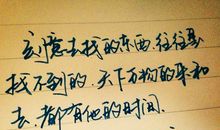 刻意去找的东西，往往是
找不到的．天下万物的来和
去，都有他的时间．